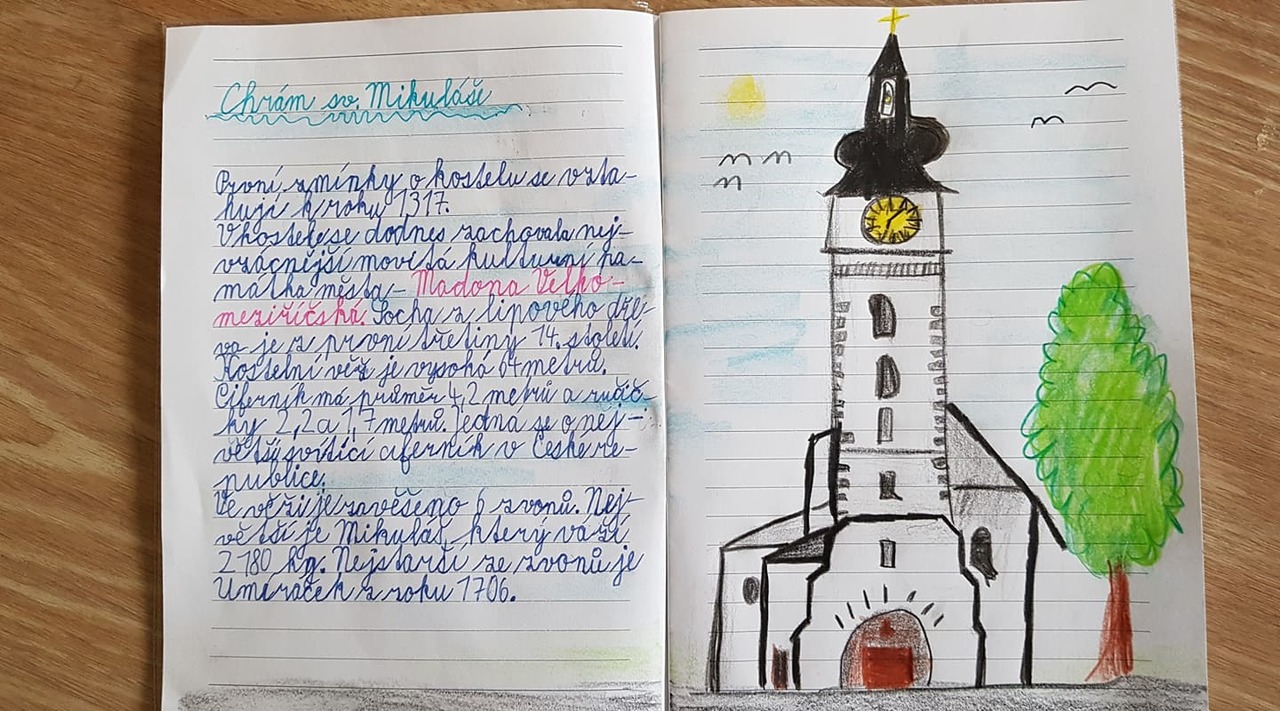 Chrám sv. Mikuláše
První zmínky o kostelu se vzta-
hují k roku 1317.
V kostele se dodnes zachovala nej-
vzácnější movitá kulturní pa-
mátka města - Madona Velko-
meziříčská. Socha z lipového dře-
va je z první třetiny 14. století.
Kostelní věž je vysoká 64 metrů.
Ciferník má průměr 4,2 metrů a ručič-
ky 2,2 a 1,7 metrů. Jedná se o nej-
větší svítící ciferník v České re-
publice.
Ve věži je zavěšeno 6 zvonů. Nej-
větší je Mikuláš, který váží
2 180 kg. Nejstarší ze zvonů je
Umíráček z roku 1706.